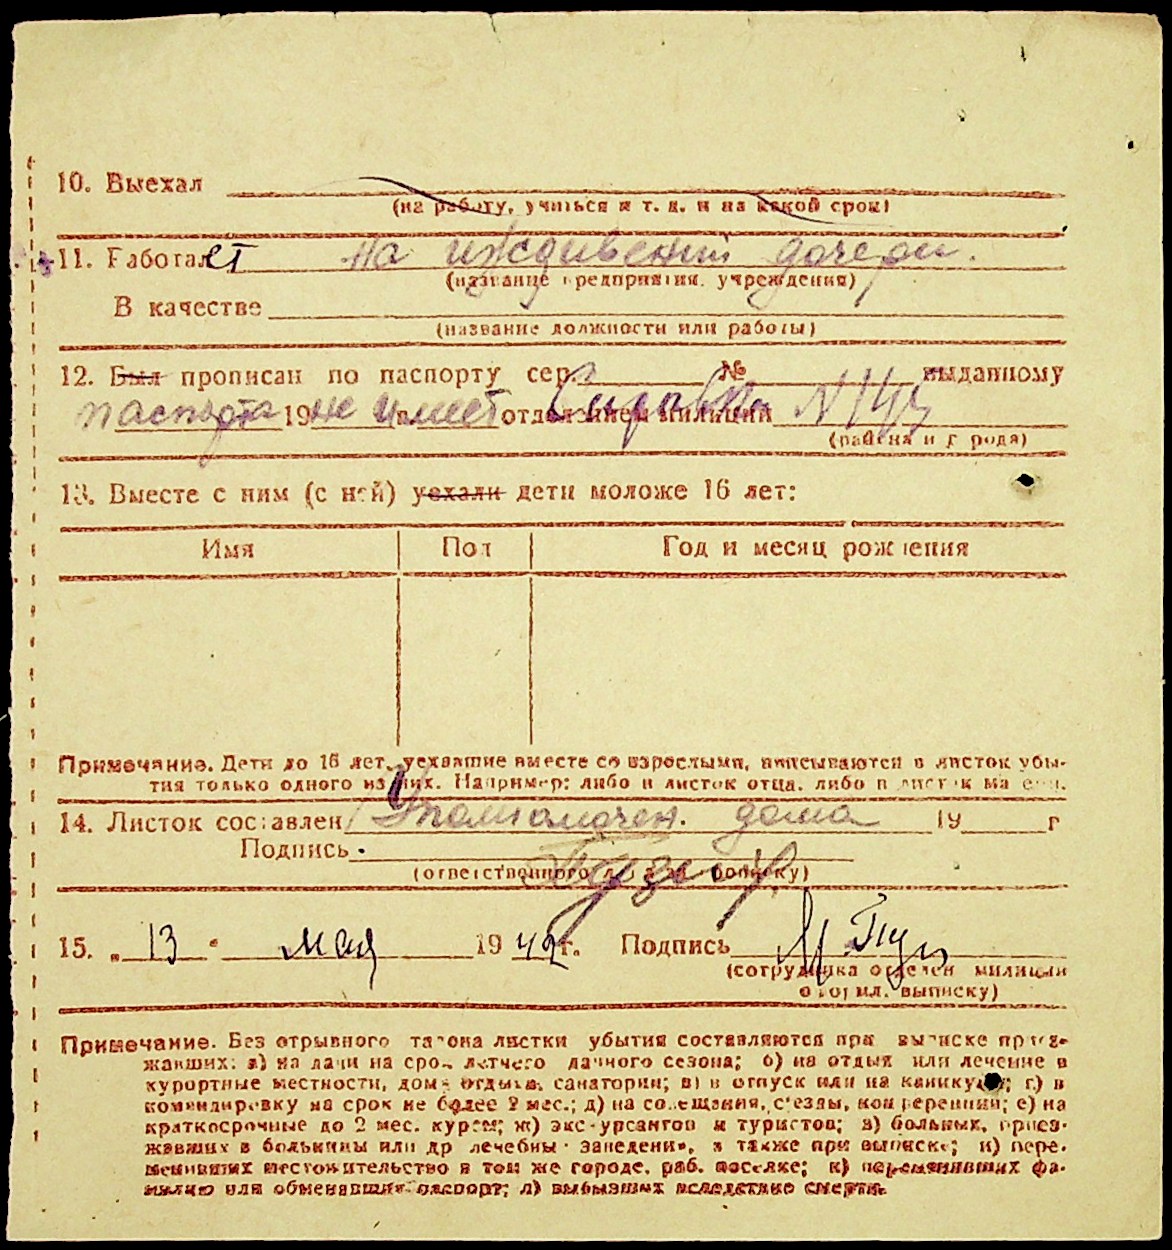 10. Выехал
(на работу, учиться и т. д. и на какой срок)
11. Работает на иждивении дочери.
(название предприятия, учреждения)
В качестве
(название должности или работы)
12. Был прописан по паспорту сер. № выданному
паспорта 19 не имеет отделением милиции Справка N
(района и города)
13. Вместе с ним (с ней) уехали дети моложе 16 лет:
Имя Пол Год и месяц рождения
Примечание. Дети до 16 лет, уехавшие вместе со взрослыми, вписываются в листок убы-
тия только одного из них. Например: либо в листок отца, либо в листок матери.
14. Листок составлен Уполномочен. дома 19 г
Подпись
(ответственного за прописку)
15. „13" мая 1942 г. Подпись
(сотрудника отделен милиции
оформл. выписку)
Примечание. Без отрывного талона листки убытия составляются при выписке приез-
жавших: а) на дачи на срок летнего дачного сезона; б) на отдых или лечение в
курортные местности, дома отдыха, санатории; в) в отпуск или на каникулы; г) в
командировку на срок не более 2 мес.; д) на совещания, съезды, конференции; е) на
краткосрочные до 2 мес. курсы; ж) экскурсантов и туристов; з) больных, приез-
жавших в больницы или др лечебны заведения, а также при выписке; и) пере-
менивших местожительство в том же городе, раб. поселке; к) переменивших фа-
милию или обменявших паспорт; л) выбывших вследствие смерти.